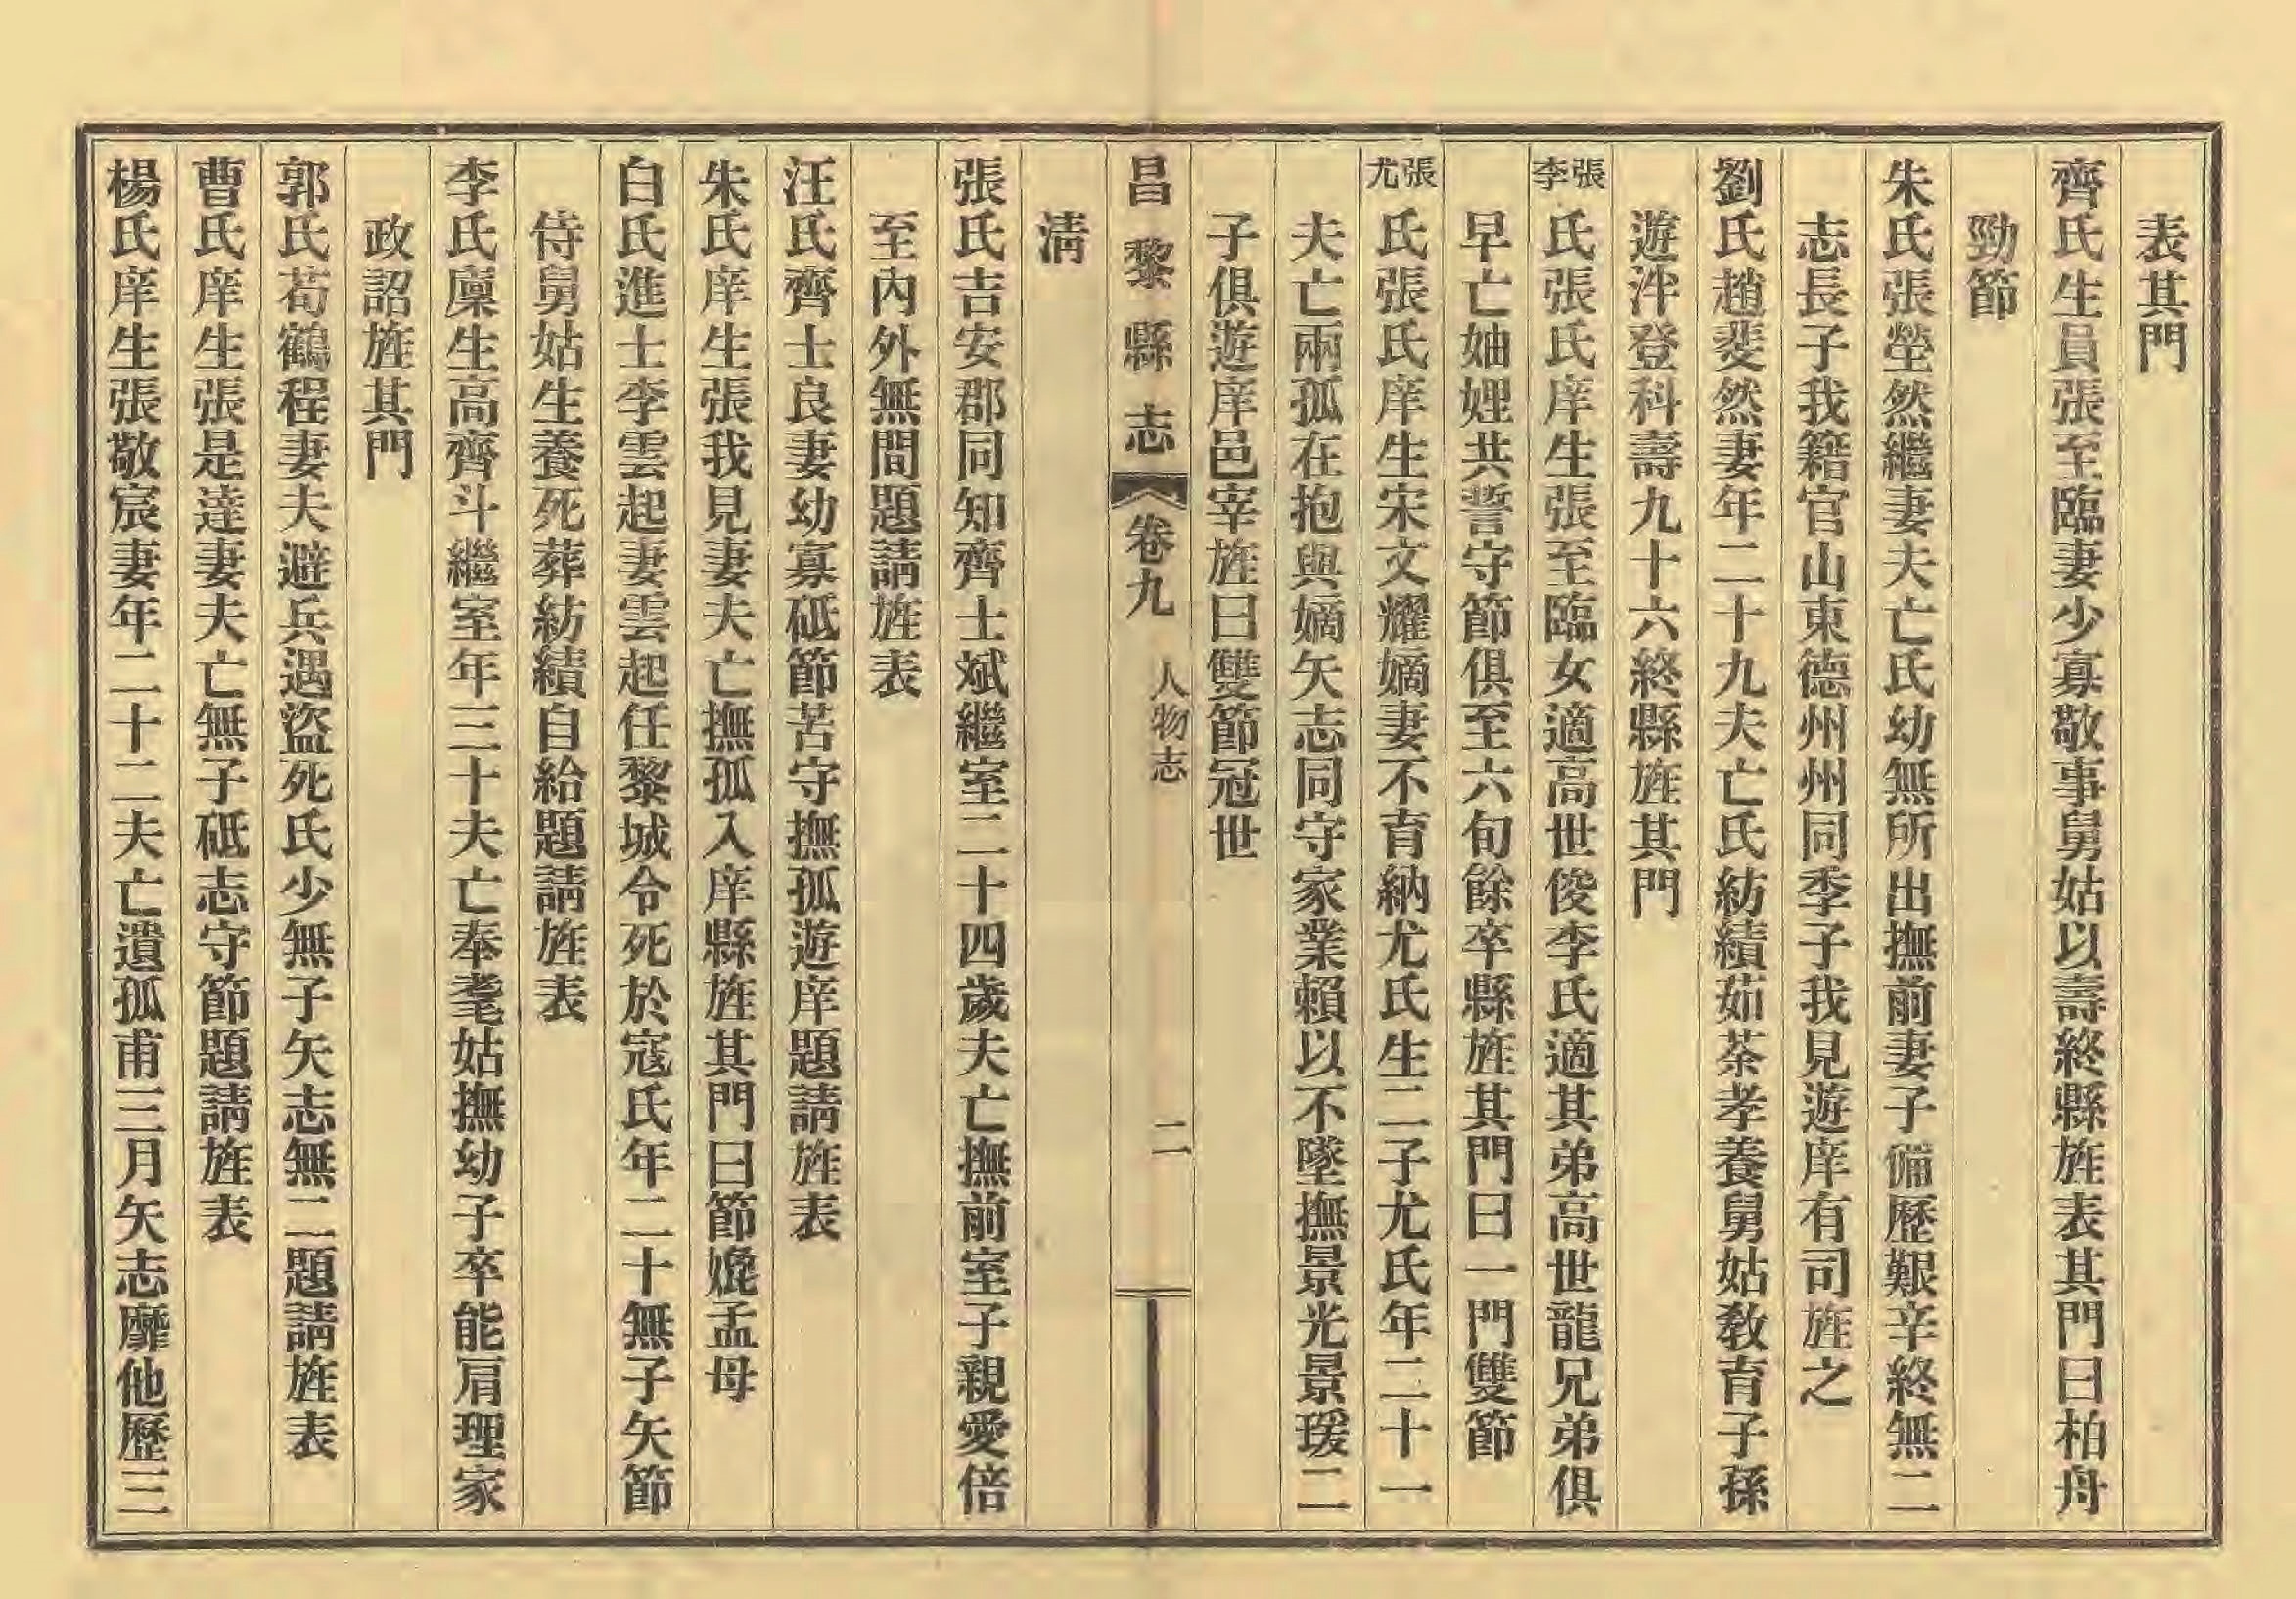 表其門
齊氏生員張至臨妻少寡敬事舅姑以壽終縣旌表其門曰柏舟
勁節
朱氏張塋然繼妻夫亡氏幼無所出撫前妻子備歷艱辛終無二
志長子我籍官山東德州州同季子我見遊庠有司旌之
劉氏趙斐然妻年二十九夫亡氏紡績茹荼孝養舅姑教育子孫
遊泮登科壽九十六終縣旌其門
張李氏張氏庠生張至臨女適高世俊李氏適其弟高世龍兄弟俱
早亡妯娌共誓守節俱至六旬餘卒縣旌其門曰一門雙節
張尤氏張氏庠生宋文耀嫡妻不育納尤氏生二子尤氏年二十一
夫亡兩孤在抱與嫡矢志同守家業賴以不墜撫景光景瑗二
子俱遊庠邑宰旌曰雙節冠世
昌黎縣志 卷九 人物志 二
清
張氏吉安郡同知齊士斌繼室二十四歲夫亡撫前室子親愛倍
至內外無間題請旌表
汪氏齊士良妻幼寡砥節苦守撫孤遊庠題請旌表
朱氏庠生張我見妻夫亡撫孤入庠縣旌其門曰節媲孟母
白氏進士李雲起妻雲起任黎城令死於寇氏年二十無子矢節
侍舅姑生養死葬紡績自給題請旌表
李氏廩生高齊斗繼室年三十夫亡奉耄姑撫幼子卒能肩理家
政詔旌其門
郭氏荀鶴程妻夫避兵遇盜死氏少無子矢志無二題請旌表
曹氏庠生張是達妻夫亡無子砥志守節題請旌表
楊氏庠生張敬宸妻年二十二夫亡遺孤甫三月矢志靡他歷三